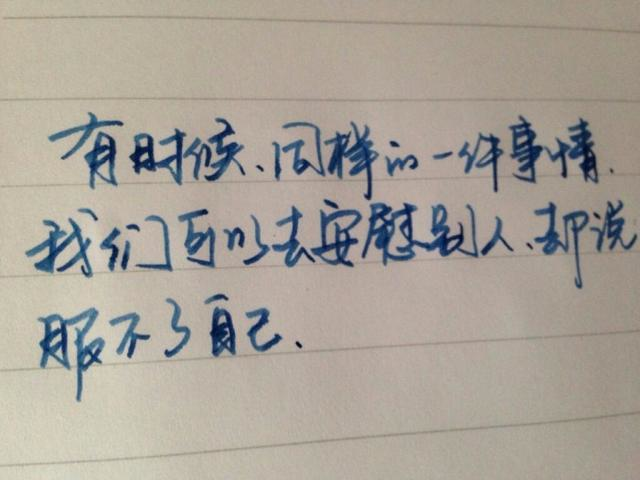 有时候、同样的一件事情.
我们可以去安慰别人、却说
服不了自己.